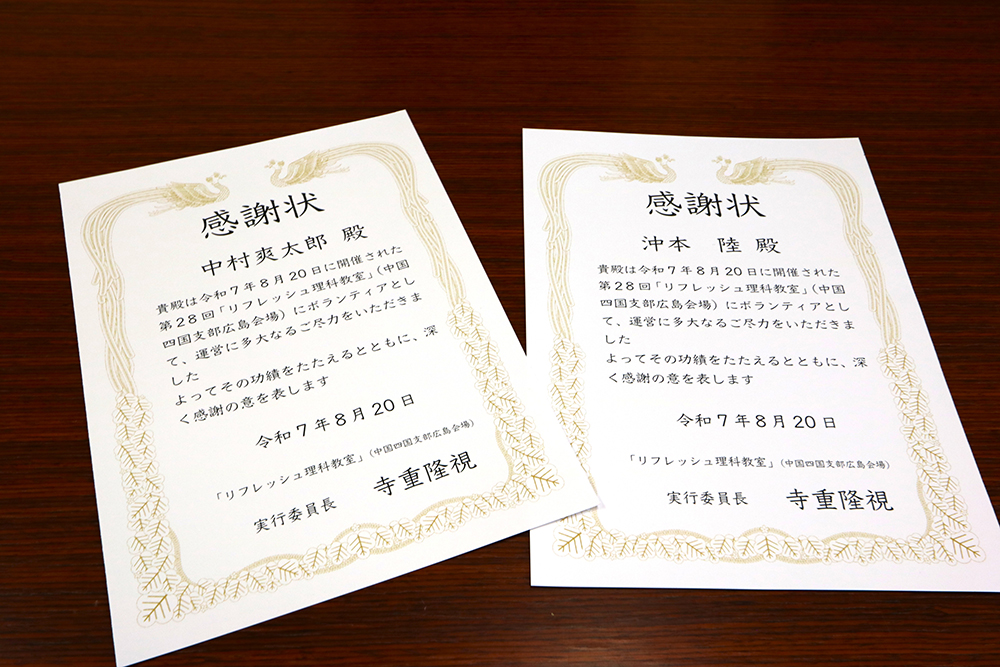 感謝状
中村爽太郎 殿
貴殿は令和7年8月20日に開催された
第28回「リフレッシュ理科教室」(中国
四国支部広島会場)にボランティアとし
て、運営に多大なるご尽力をいただきま
した
よってその功績をたたえるとともに、深
く感謝の意を表します
令和7年8月20日
「リフレッシュ理科教室」(中国四国支部広島会場)
実行委員長 寺重隆視
感謝状
沖本 陸 殿
貴殿は令和7年8月20日に開催された
第28回「リフレッシュ理科教室」(中国
四国支部広島会場)にボランティアとし
て、運営に多大なるご尽力をいただきま
した
よってその功績をたたえるとともに、深
く感謝の意を表します
令和7年8月20日
「リフレッシュ理科教室」(中国四国支部広島会場)
実行委員長 寺重隆視